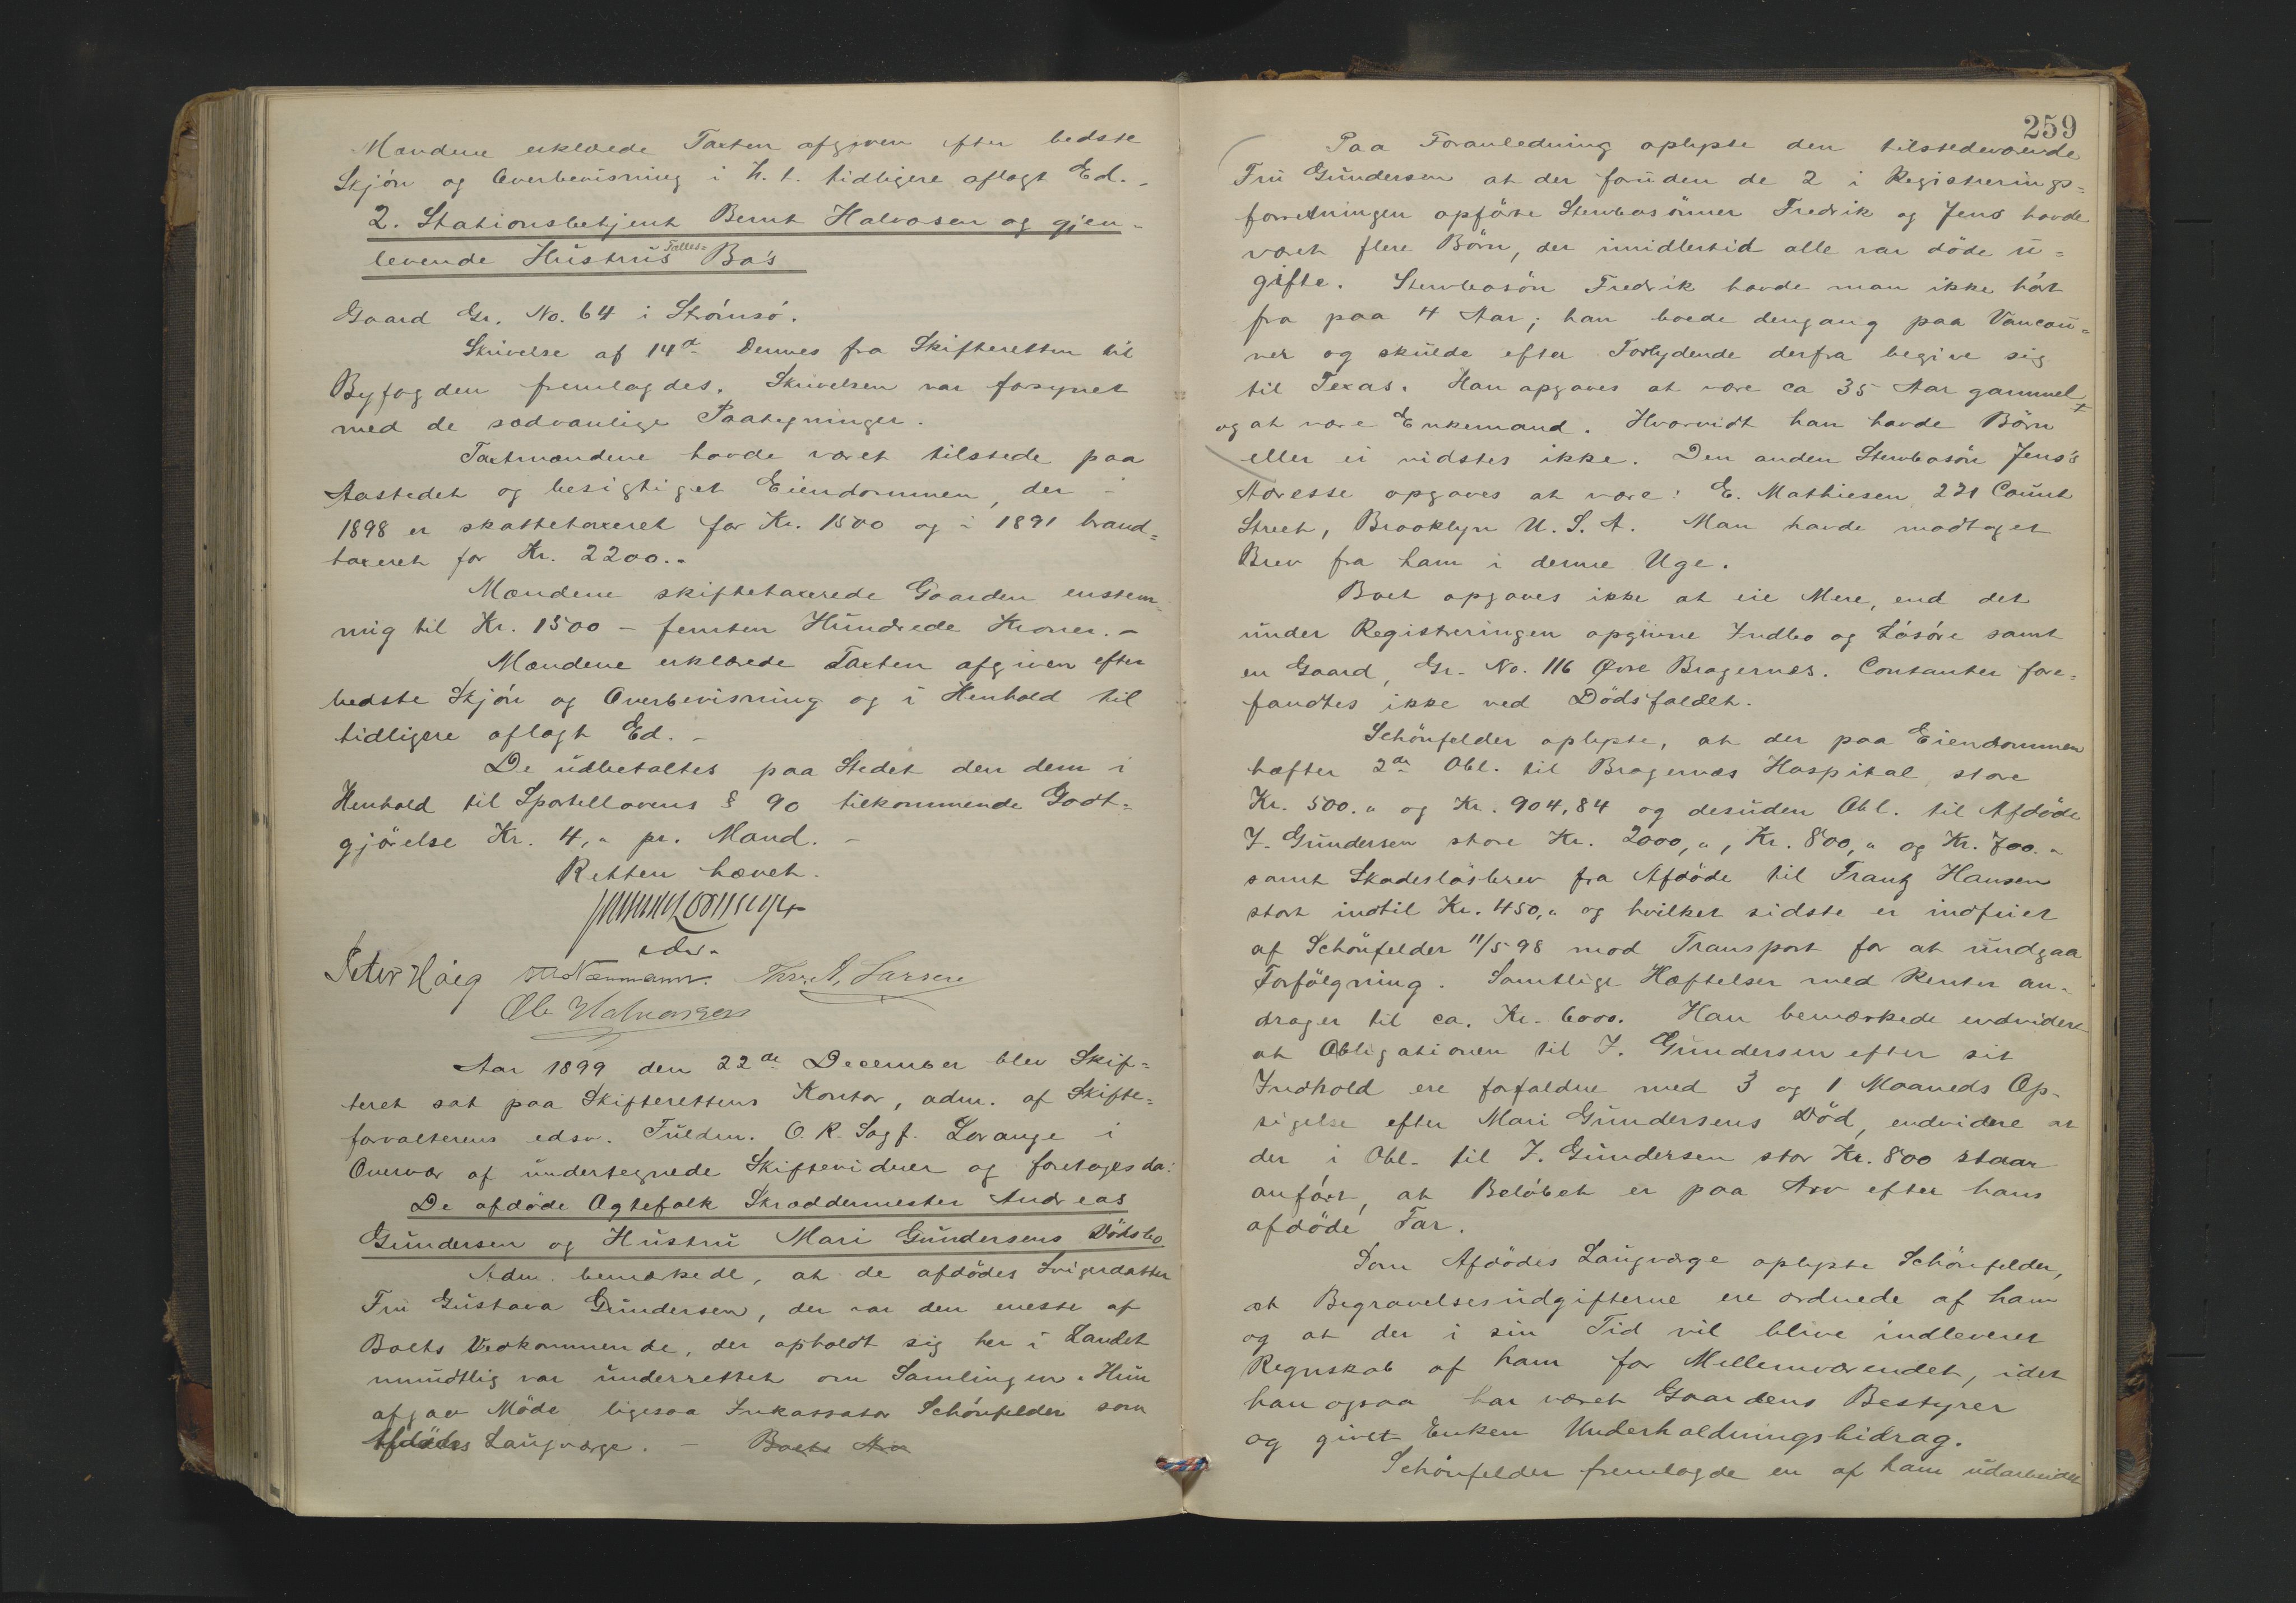 Mændene erklærede Taxten afgiven efter bedste
Skjøn og Overbevisning i H. t. tidligere aflagt Ed. -
2. Stationsbetjent Bernt Halvorsen og gjen-
levende Hustrus Fælles= Bo's
Gaard Gr. No. 64 i Strömsö.
Skrivelse af 14de Dennes fra Skifteretten til
Byfogden fremlagdes. Skrivelsen var forsynet
med de sædvanlige Paategninger.
Taxtmændene havde været tilstede paa
Aastedet og besigtiget Eiendommen, der i
1898 er skattetaxeret for Kr. 1500 og i 1891 brand=
taxeret for Kr. 2200.-
Mændene skiftetaxerede Gaarden enstem-
mig til Kr. 1500 - femten Hundrede Kroner. -
Mændene erklærede Taxten afgiven efter
bedste Skjön og Overbevisning og i Henhold til
tidligere aflagt Ed. -
De udbetaltes paa Stedet den dem i
Henhold til Sportellovens § 90 tilkommende Godt=
gjörelse Kr. 4,- pr. Mand. -
Retten hævet.
edsv.
Peter Höeg Naumann. Thrv. A. Larsen
Ole Halvorsen
Aar 1899 den 22de December blev Skif=
teret sat paa Skifterettens Kontor, adm. af Skifte=
forvalterens edsv. Fuldm. O. R. Sagf. Lorange i
Overvær af undertegnede Skiftevidner og foretoges da:
De afdöde Ægtefolk Skræddermester Andreas
Gundersen og Hustru Mari Gundersens Dödsbo
Adm. bemærkede, at de afdödes Svigerdatter
Fru Gustava Gundersen, der var den eneste af
Boets Vedkommende, der opholdt sig her i Landet
mundtlig var underrettet om Samlingen. Hun
afgav Möde ligesaa Inkassator Schönfelder som
Afdödes Laugværge. - Boets
259
Paa Foranledning oplyste den tilstedeværende
Fru Gundersen at der foruden de 2 i Registrerings=
forretningen opförte Stervbosönner Fredrik og Jens havde
været flere Börn, der imidlertid alle var döde u=
gifte. Stervbosön Fredrik havde man ikke hört
fra paa 4 Aar; han boede dengang paa Vancou=
ver og skulde efter Forlydende derfra begive sig
til Texas. Han opgaves at være ca 35 Aar gammel
og at være Enkemand. Hvorvidt han havde Börn
eller ei vidstes ikke. Den anden Stervbosön Jens's
Adresse opgaves at være: E. Mathiesen 221 Count
Street, Brooklyn U. S. A. Man havde modtaget
Brev fra ham i denne Uge.
Boet opgaves ikke at eie Mere, end det
under Registreringen opgivne Indbo og Lösöre samt
en Gaard, Gr. No. 116 Øvre Bragernæs. Contanter fore=
fandtes ikke ved Dödsfaldet.
Schönfelder oplyste, at der paa Eiendommen
hæfter 2de Obl. til Bragernæs Hospital store
Kr. 500.- og Kr. 904,84 og desuden Obl. til Afdöde
J. Gundersen store Kr. 2000,-, Kr. 800,- og Kr. 700.-
samt Skadeslösbrev fra Afdöde til Frantz Hansen
stort indtil Kr. 450,- og hvilket sidste er indfriet
af Schönfelder 11/5 98 mod Transport for at undgaa
Forfölgning. Samtlige Hæftelser med Renter an-
drager til ca. Kr. 6000. Han bemærkede endvidere
at Obligationen til J. Gundersen efter sit
Indhold ere forfaldne med 3 og 1 Maaneds Op-
sigelse efter Mari Gundersens Död, endvidere at
der i Obl. til J. Gundersen stor Kr. 800 staar
anfört, at Belöbet er paa Arv efter hans
afdöde Far.
Som Afdödes Laugværge oplyste Schönfelder,
at Begravelsesudgifterne ere ordnede af ham
og at der i sin Tid vil blive indleveret
Regnskab af ham for Mellemværendet, idet
han ogsaa har været Gaardens Bestyrer
og givet Enken Underholdningsbidrag.
Schönfelder fremlagde en af ham udarbeidet